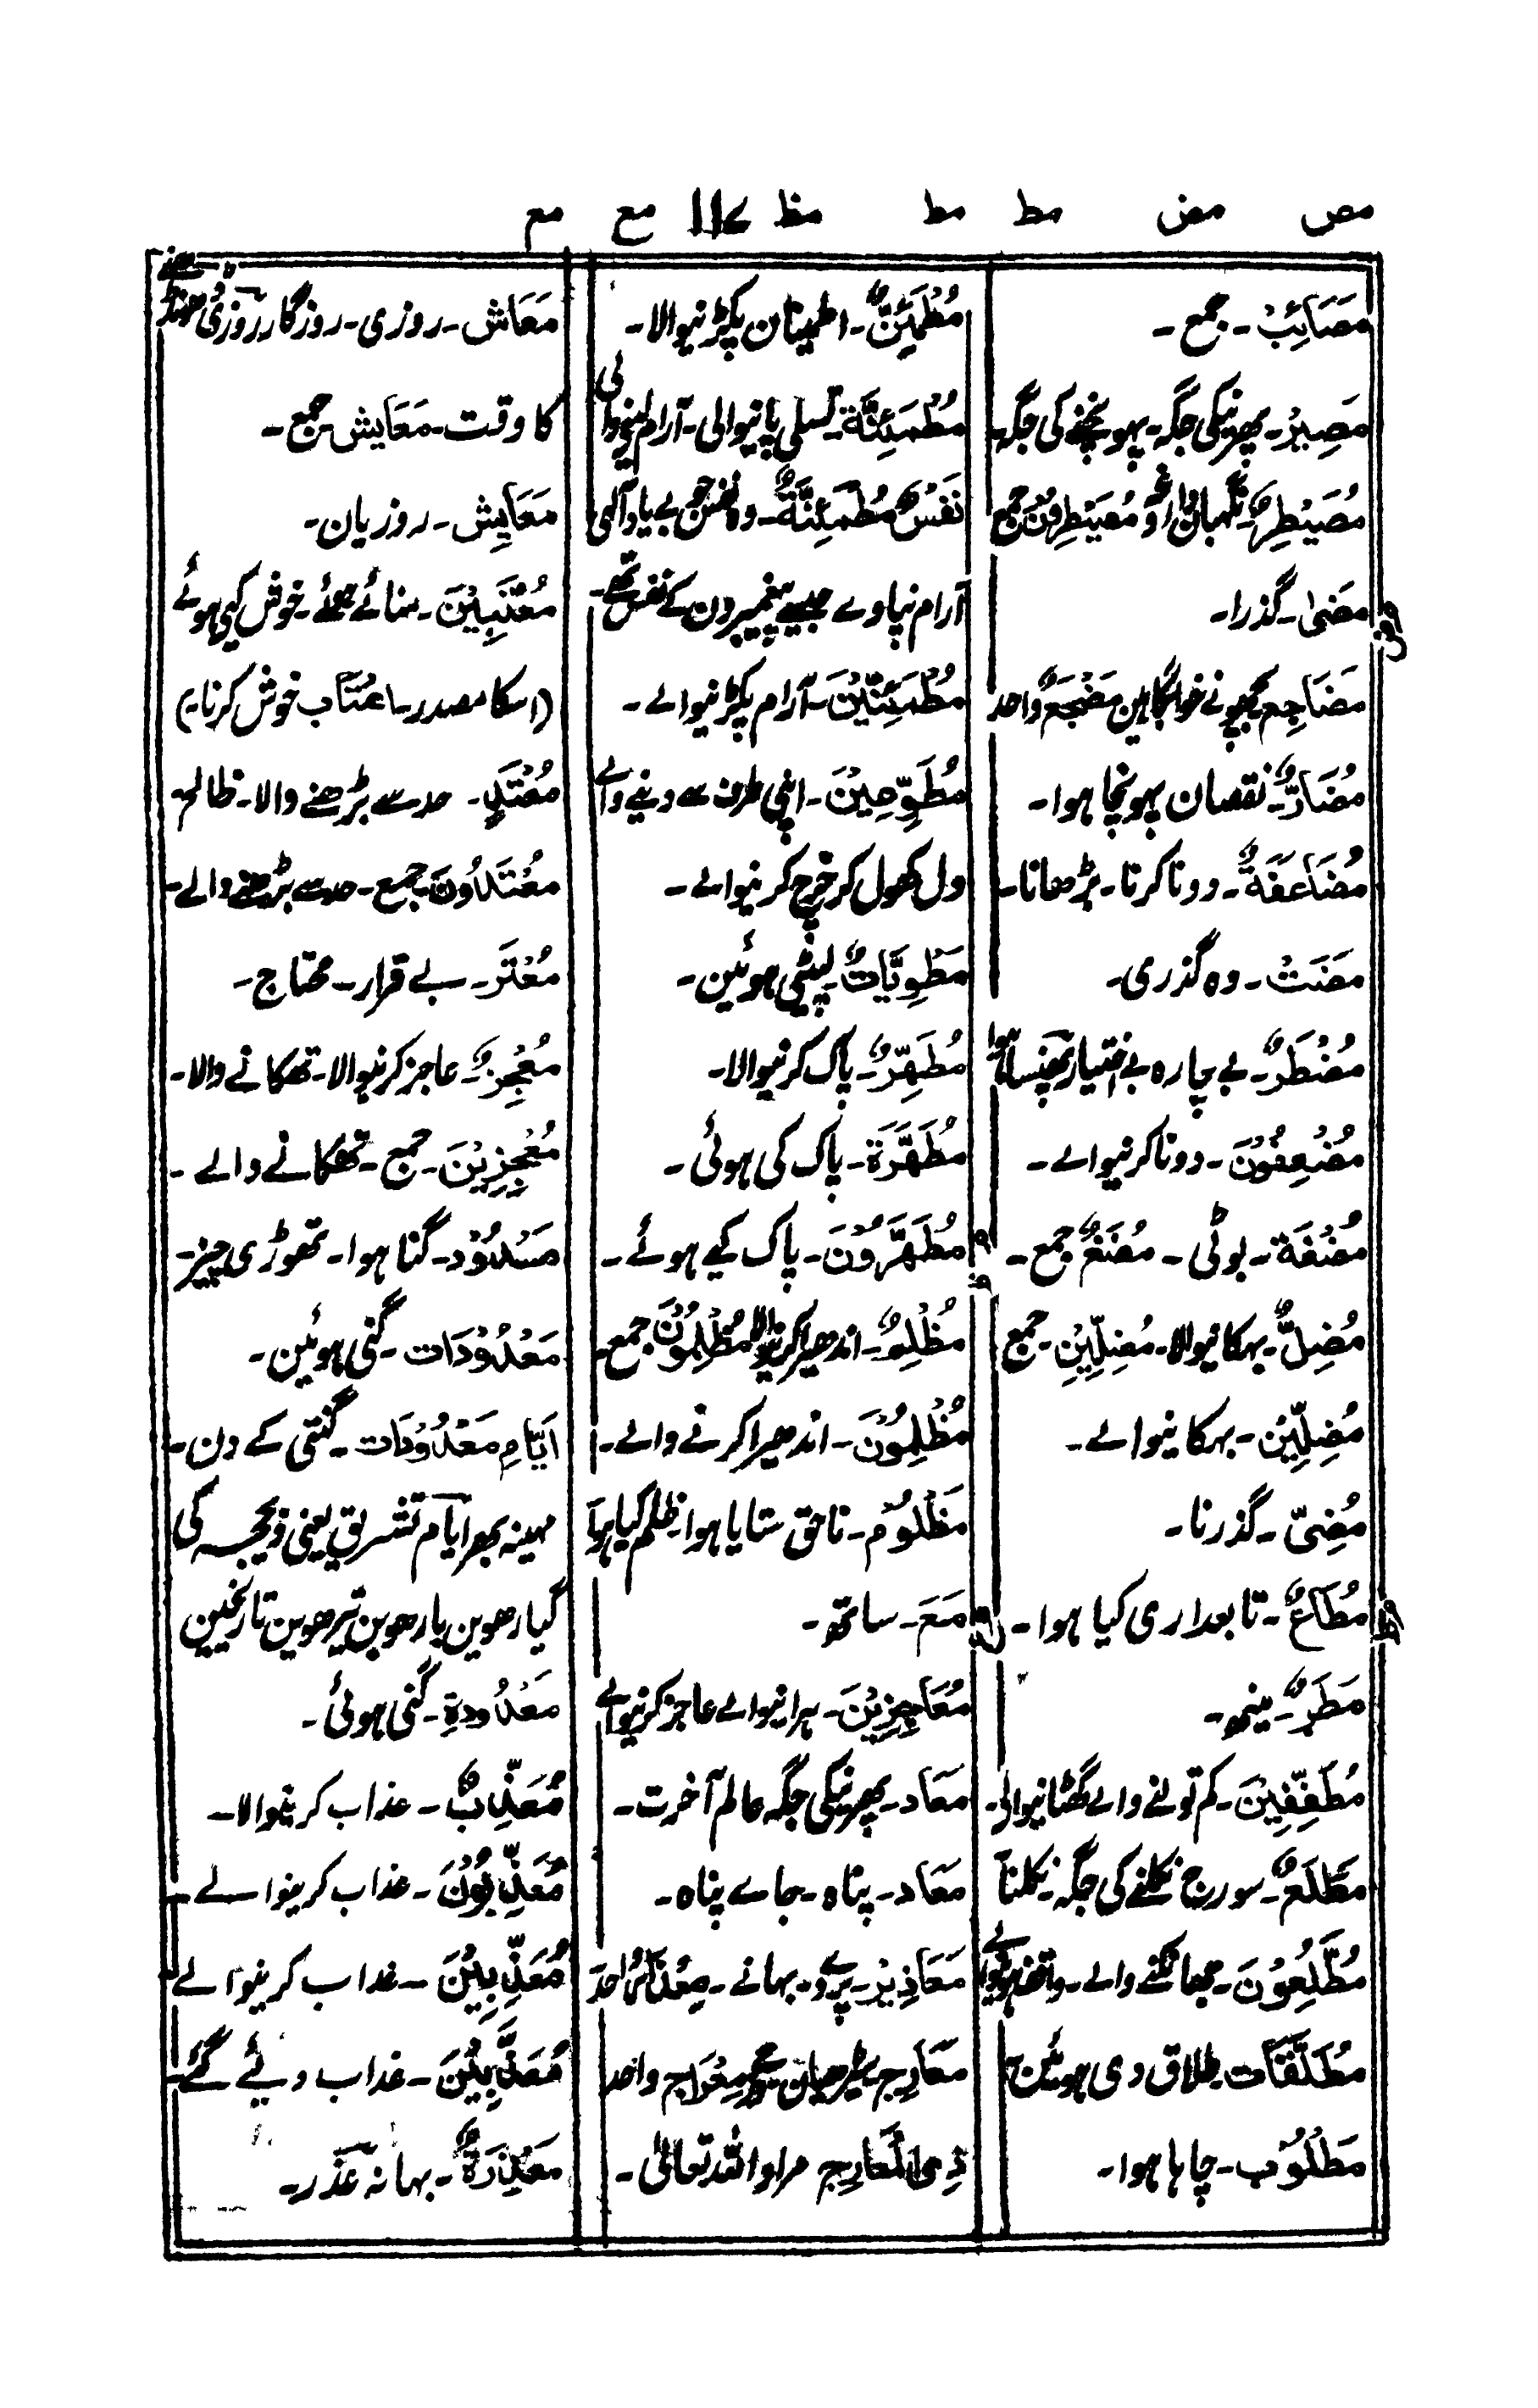 مص مض مط مط مظ ۱۱۷ مع مع
مَصَائِبُ۔ جمع۔
مَصِیْرُ۔ پھرنیکی جگہ۔ پہونچنے کی جگہ۔
مُصَیْطِرٌ۔ نگہبان داروغہ مُصَیْطِرُوْنَ جمع
مض
مَضیٰ۔ گذرا۔
مَضَاجِع بچھونے خوابگاہین مَضْجَعٌ واحد
مُضَارٌّ۔ نقصان پہونچا ہوا۔
مُضَاعَفَةٌ۔ دونا کرنا۔ بڑھانا۔
مَضَتْ۔ وہ گذری۔
مُضْطَرٌّ۔ بے چارہ بے اختیار پھنسا ہوا
مُضْعِفُوْنَ۔ دونا کرنیوالے۔
مُضْغَة۔ بوٹی۔ مُضَغٌ جمع۔
مُضِلٌّ۔ بہکانیوالا۔ مُضِلِّیْنِ۔ جمع
مُضِلِّیْنَ۔ بہکانیوالے۔
مُضِیّ۔ گذرنا۔
مط
مُطَاعٌ۔ تابعداری کیا ہوا۔
مَطَرٌ۔ مینھ۔
مُطَفِّفِیْنَ۔ کم تولنے والے گھٹانیوالے۔
مَطْلَعٌ۔ سورج نکلنے کی جگہ۔ نکلنا
مُطَّلِعُوْنَ۔ جھانکنے والے۔ واقف ہونیوالے
مُطَلَّقَات طلاق دی ہوئین
مَطْلُوْب۔ چاہا ہوا۔
مُطْمَئِنٌّ۔ اطمینان پکڑنیوالا۔
مُطْمَئِنَّة۔ تسلی پانیوالی۔ آرام لینے والی
نَفْسٌ مُطْمَئِنَّةٌ۔ وہ نفس جو بے یاد آلہی
آرام نپاوے جیسے پیغمبرون کے نفس تھے۔
مُطْمَئِنِّیْنَ۔ آرام پکڑنیوالے۔
مُطَوِّعِیْنَ۔ اپنی طرف سے دینے والے
دل کھول کر خرچ کرنیوالے۔
مَطْوِیَّاتٌ۔ لپٹی ہوئین۔
مُطَهِّرٌ۔ پاک کرنیوالا۔
مُطَهَّرَة۔ پاک کی ہوئی۔
مُطَهَّرُوْنَ۔ پاک کیے ہوئے۔
مظ
مُظْلِمٌ۔ اندھیرا کرنیوالا مُظْلِمُوْنَ جمع۔
مُظْلِمُوْنَ۔ اندھیرا کرنے والے۔
مَظْلُوْم۔ ناحق ستایا ہوا۔ ظلم کیا ہوا
مع
مَعَ۔ ساتھ۔
مُعَاجِزِیْنَ۔ ہرانیوالے عاجز کرنیوالے
مَعَاد۔ پھرنیکی جگہ عالم آخرت۔
مَعَاذ۔ پناہ۔ جاے پناہ۔
مَعَاذِیْرَ۔ پردے۔ بہانے۔ مِعْذَارٌ واحد
مَعَارِج۔ سیڑھیان مِعْرَاج واحد
ذِی الْمَعَارِج مراد اللہ تعالیٰ۔
مَعَاش۔ روزی۔ روزگار روزی ڈھونڈھنے
کا وقت۔ مَعَایِش جمع۔
مَعَایِش۔ روزیان۔
مُعْتَبِیْنَ۔ منائے ہوئے۔ خوش کیے ہوئے
(اسکا مصدر اعتاب خوش کرنا ہے)
مُعْتَدٍ۔ حد سے بڑھنے والا۔ ظالم
مُعْتَدُوْنَ۔ جمع۔ حد سے بڑھنے والے۔
مُعْتَر۔ بے قرار۔ محتاج۔
مُعْجِزٌ۔ عاجز کرنیوالا۔ تھکانے والا۔
مُعْجِزِیْنَ۔ جمع۔ تھکانے والے۔
مَعْدُوْد۔ گنا ہوا۔ تھوڑی چیز۔
مَعْدُوْدَات۔ گنی ہوئین۔
اَیَّامِ مَعْدُوْدَات۔ گنتی کے دن۔
مہینہ بھر ایام تشریق یعنی ذیحجہ کی
گیارھوین بارھوین تیرھوین تاریخین
مَعْدُودَةِ۔ گنی ہوئی۔
مُعَذِّبٌ۔ عذاب کرنیوالا۔
مُعَذِّبُوْنَ۔ عذاب کرنیوالے۔
مُعَذِّبِیْنَ۔ عذاب کرنیوالے
مُعَذَّبِیْنَ۔ عذاب دیئے گئے۔
مَعْذِرَةٌ۔ بہانہ عذر۔